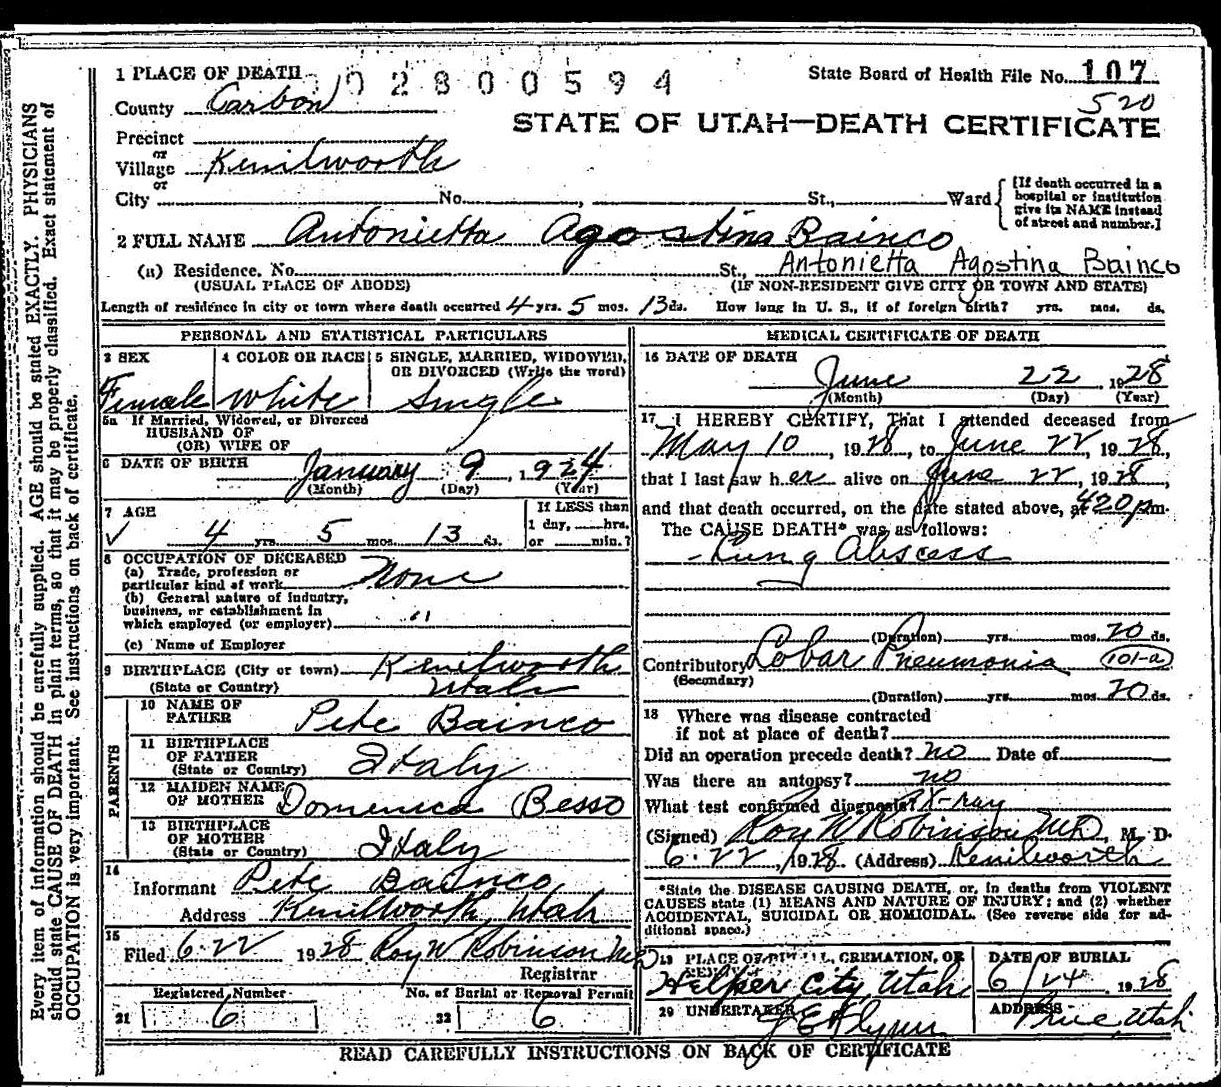 1 PLACE OF DEATH 02800594 State Board of Health File No. 107
County Carbon 520
STATE OF UTAH—DEATH CERTIFICATE
Precinct
or
Village Kenilworth
or
City No. , St., Ward
[If death occurred in a
hospital or institution
give its NAME instead
of street and number.]
2 FULL NAME Antonietta Agostina Bainco
(a) Residence. No. St., Antonietta Agostina Bainco
(USUAL PLACE OF ABODE) (IF NON-RESIDENT GIVE CITY OR TOWN AND STATE)
Length of residence in city or town where death occurred 4 yrs. 5 mos. 13 ds. How long in U. S., if of foreign birth? yrs. mos. ds.
PERSONAL AND STATISTICAL PARTICULARS
3 SEX
Female
4 COLOR OR RACE
White
5 SINGLE, MARRIED, WIDOWED,
OR DIVORCED (Write the word)
Single
5a If Married, Widowed, or Divorced
HUSBAND OF
(OR) WIFE OF
6 DATE OF BIRTH
January 9, 1924
(Month) (Day) (Year)
7 AGE
4 yrs. 5 mos. 13 ds.
If LESS than
1 day, hrs.
or min.?
8 OCCUPATION OF DECEASED
(a) Trade, profession or
particular kind of work None
(b) General nature of industry,
business, or establishment in
which employed (or employer) "
(c) Name of Employer
9 BIRTHPLACE (City or town) Kenilworth
(State or Country) Utah
PARENTS
10 NAME OF
FATHER Pete Bainco
11 BIRTHPLACE
OF FATHER
(State or Country) Italy
12 MAIDEN NAME
OF MOTHER Domenica Besso
13 BIRTHPLACE
OF MOTHER
(State or Country) Italy
14
Informant Pete Bainco
Address Kenilworth, Utah
15
Filed 6-22 1928 Roy W Robinson MD
Registrar
Registered Number
21 6
No. of Burial or Removal Permit
22 6
MEDICAL CERTIFICATE OF DEATH
16 DATE OF DEATH
June 22, 1928
(Month) (Day) (Year)
17 I HEREBY CERTIFY, That I attended deceased from
May 10, 1928, to June 22, 1928,
that I last saw her alive on June 22, 1928,
and that death occurred, on the date stated above, at 420 pm.
The CAUSE DEATH* was as follows:
Lung Abscess
(Duration) yrs. mos. 20 ds.
Contributory Lobar Pneumonia 101-a
(Secondary)
(Duration) yrs. mos. 20 ds.
18 Where was disease contracted
if not at place of death?
Did an operation precede death? no Date of
Was there an autopsy? no
What test confirmed diagnosis? X-ray
(Signed) Roy W Robinson MD, M. D.
6-22, 1928 (Address) Kenilworth
*State the DISEASE CAUSING DEATH, or, in deaths from VIOLENT
CAUSES state (1) MEANS AND NATURE OF INJURY; and (2) whether
ACCIDENTAL, SUICIDAL OR HOMICIDAL. (See reverse side for ad-
ditional space.)
19 PLACE OF BURIAL, CREMATION, OR
REMOVAL
Helper City, Utah
DATE OF BURIAL
6/24 1928
20 UNDERTAKER
J E Flynn
ADDRESS
Price Utah
READ CAREFULLY INSTRUCTIONS ON BACK OF CERTIFICATE
Every item of information should be carefully supplied. AGE should be stated EXACTLY. PHYSICIANS
should state CAUSE OF DEATH in plain terms, so that it may be properly classified. Exact statement of
OCCUPATION is very important. See instructions on back of certificate.